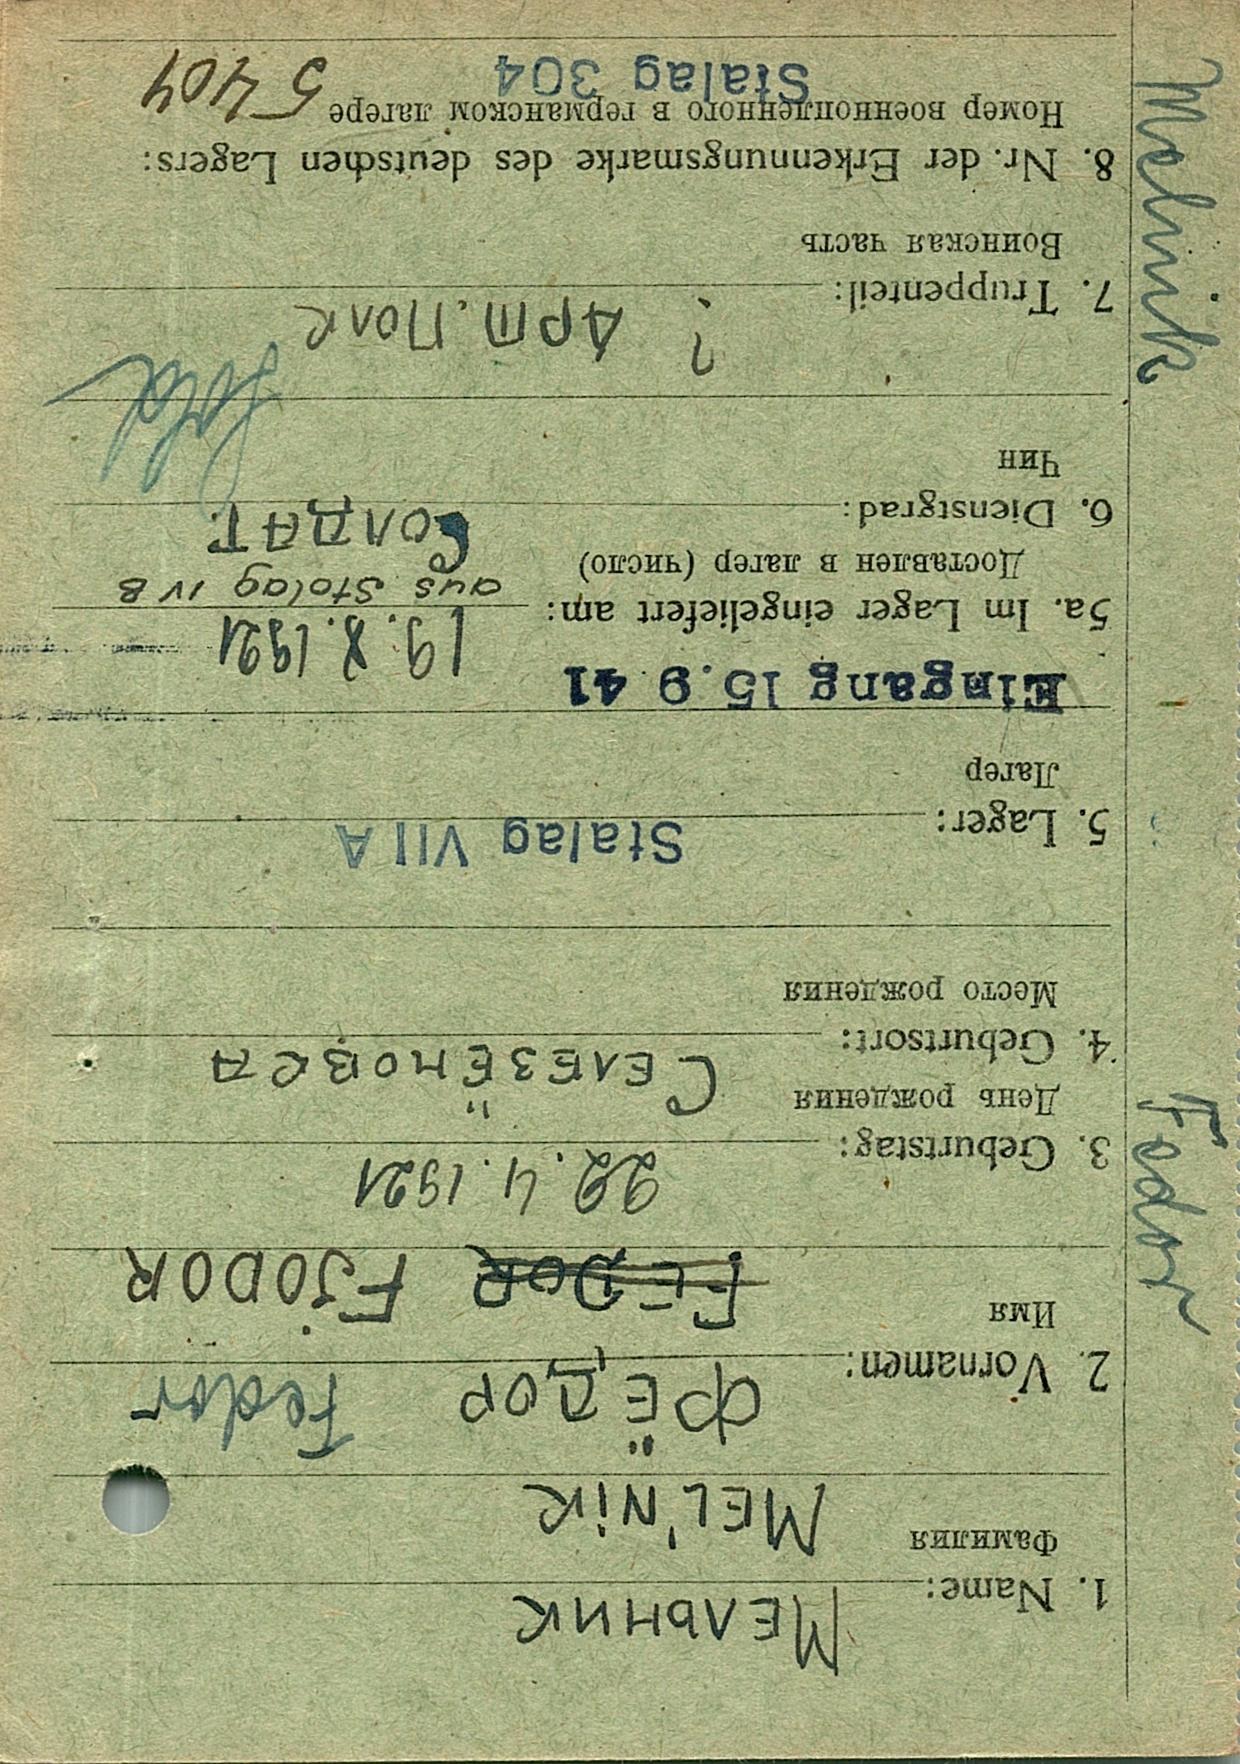 Мельник
1. Name:
Фамилия
MEL'NiK
Фёдор Fedor
2. Vornamen:
Имя
FEDOR FJODOR
22.4.1921
3. Geburtstag:
День рождения
Селезёновка
4. Geburtsort:
Место рождения
Stalag VII A
5. Lager:
Лагер
Eingang 15.9 41
19. X. 1921
5a. Im Lager eingeliefert am: aus Stalag IV B
Доставлен в лагер (число)
Солдат
6. Dienstgrad:
Чин
Sold
? Арт. Полк
7. Truppenteil:
Воинская часть
8. Nr. der Erkennungsmarke des deutschen Lagers:
Номер военнопленного в германском лагере 5404
Stalag 304
Fedor
Melnik